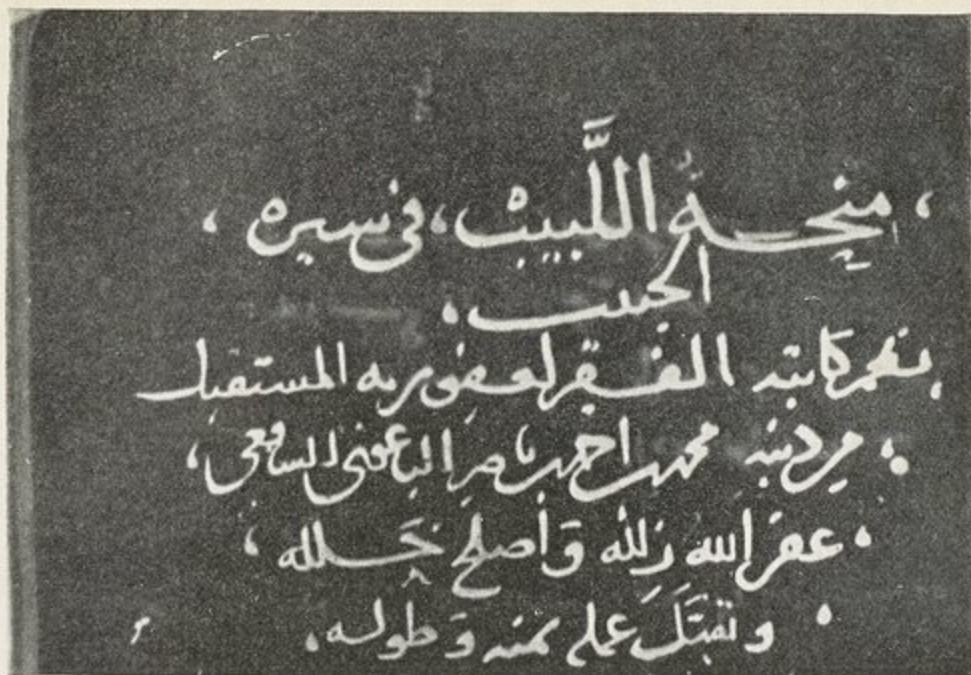 منحة اللَّبيب، في سيره
الحبيب
نظم كاتبه الفقير لعفو ربه المستقيل
من ذنبه محمد احمد ناصر الباعوني الشافعي
غفر الله زلله وَأصلح خلله
وتقبَّلَ عمله بمنه وَطوله